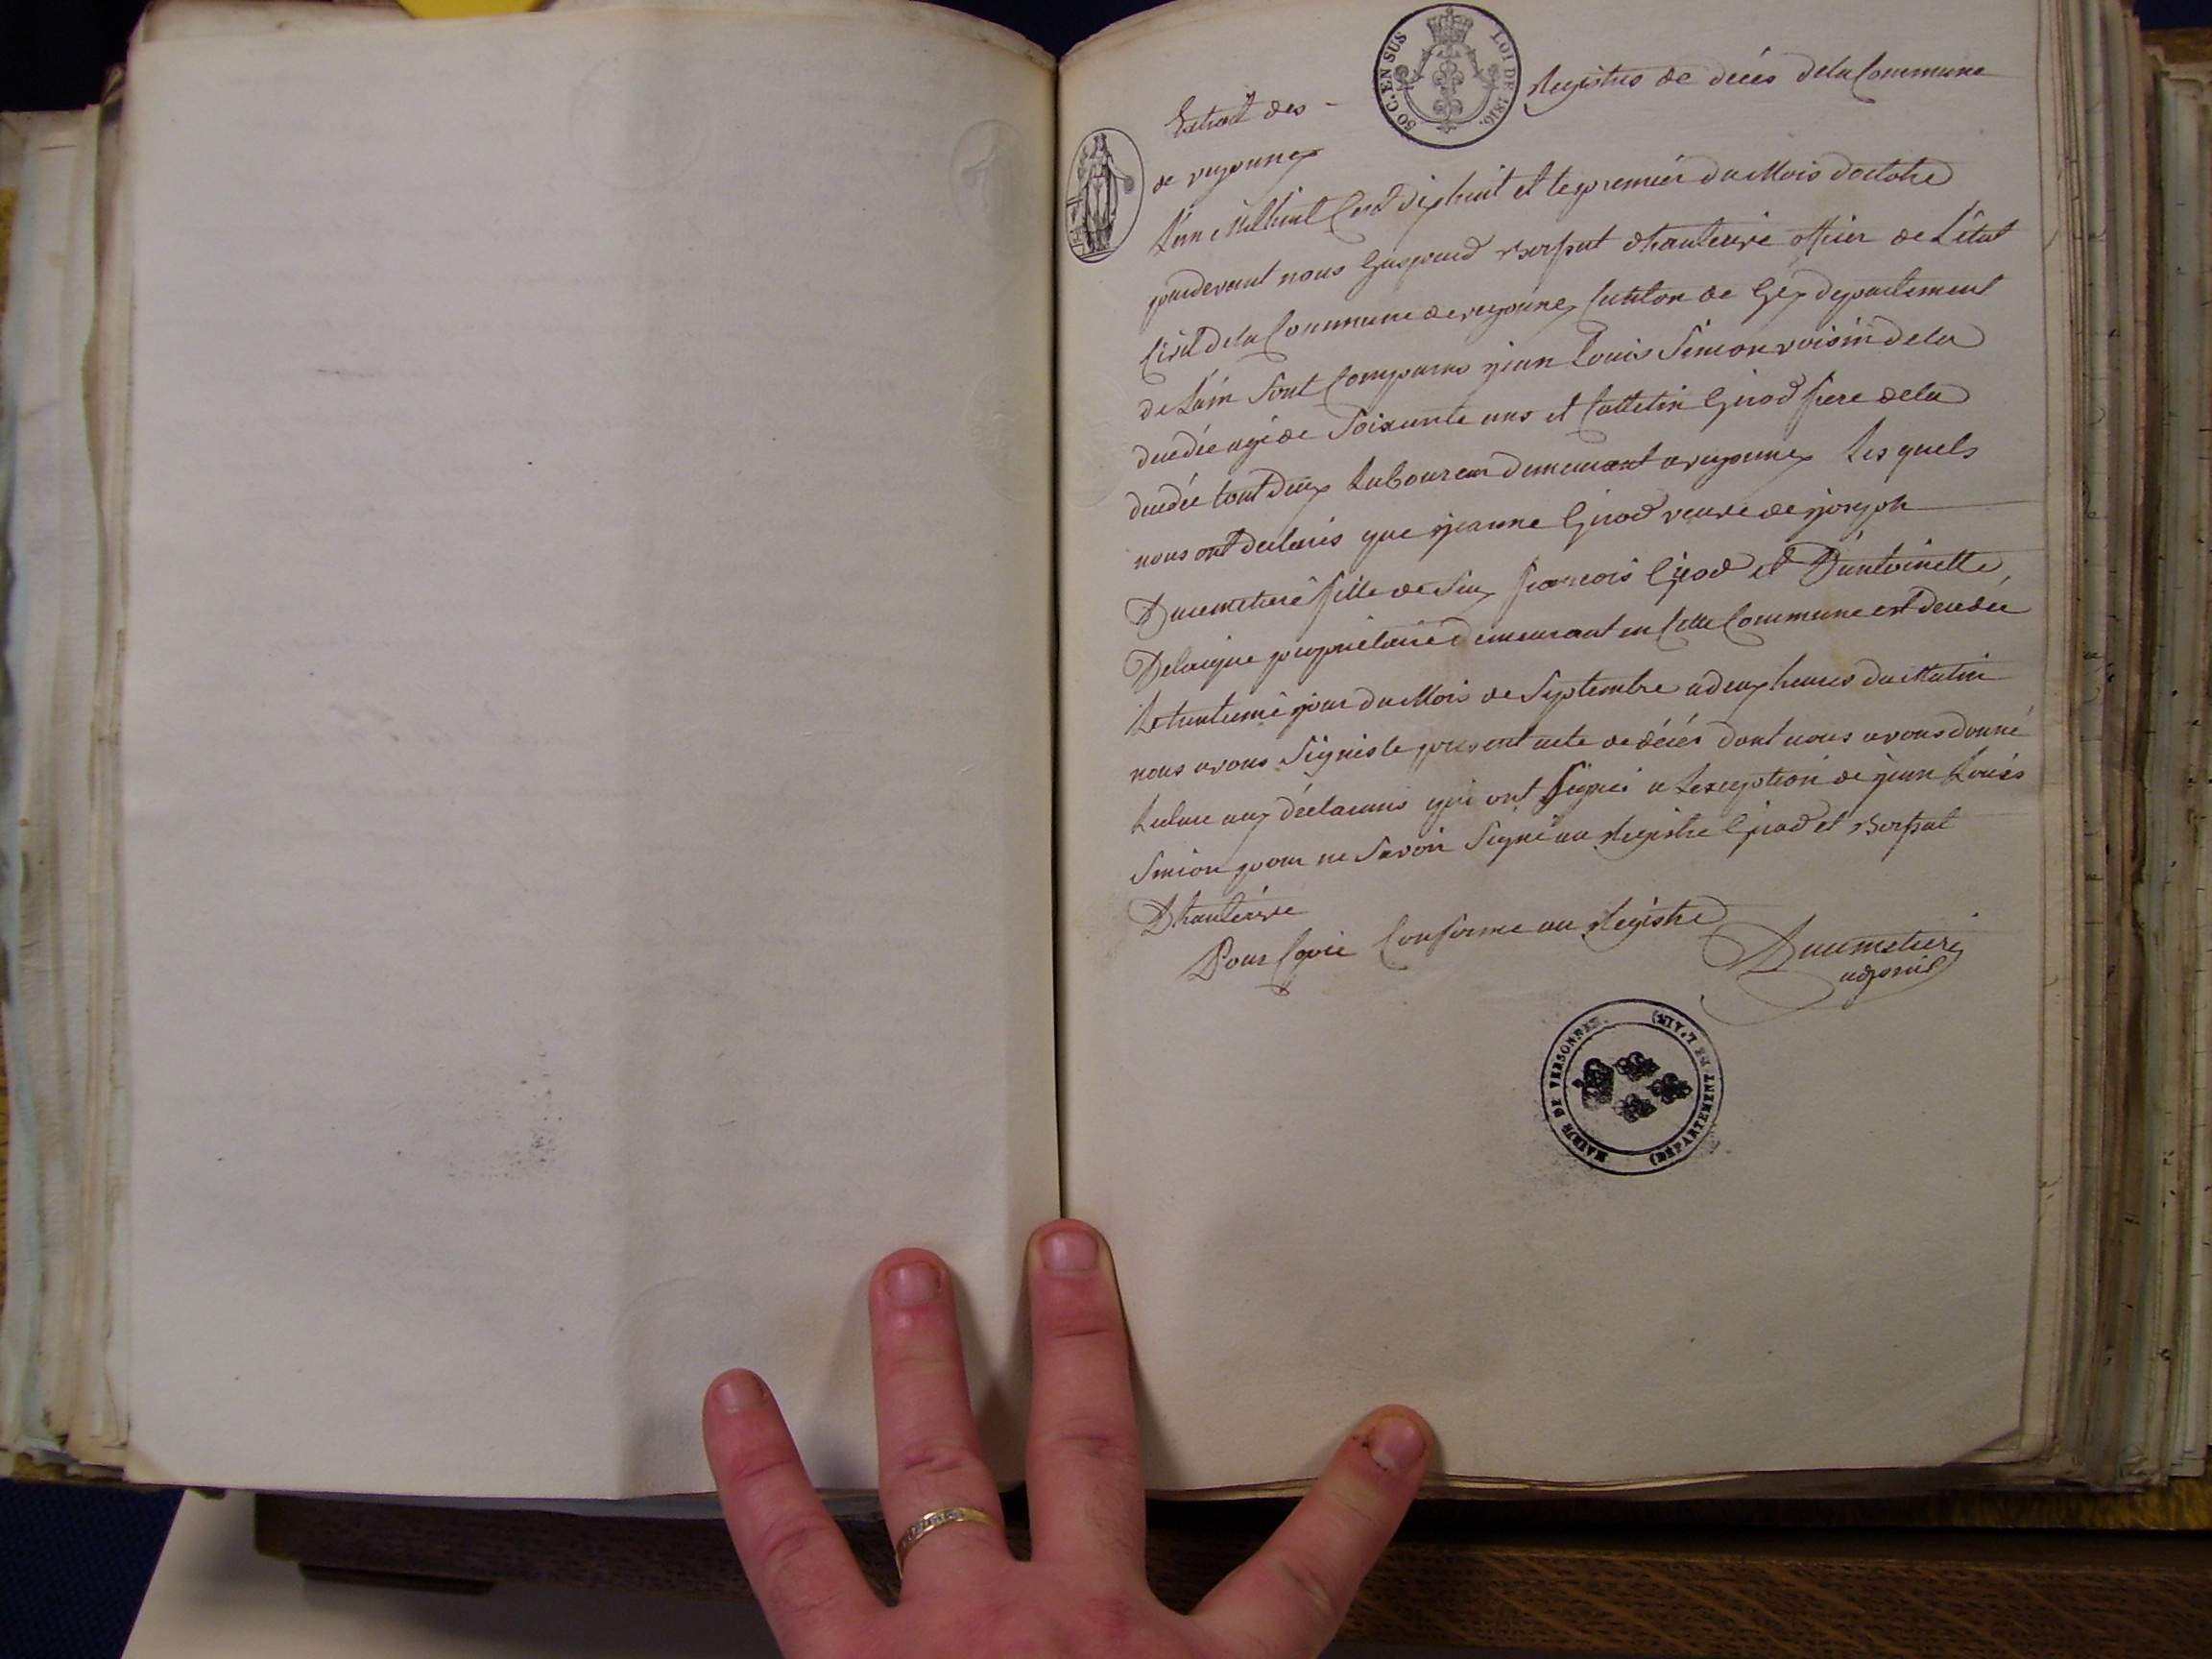 50 C. EN SUS LOI DE 1816.
Extrait des - Registres de décés dela Commune
de
L'an Mil huit Cent dix huit et le premiér du Mois doctobre
pardevant nous Gaspard dhauteuive officier de Létat
Civil dela Commune de Canton de Géx departement
de Láin Sont Comparus jean Louis Simon voisin dela
decedée agé de Soixante ans et Girod frere dela
decedée tout deux Laboureur demeurant a Les quels
nous ont declarés que jeanne Girod veuve de joseph
Ducimetiere fille de feux francois Girod et Dantoinette
Delaigue propriétaire demeurant en Cette Commune est decedée
Le trentieme jour du Mois de Septembre a deux heures du Matin
nous avons Signés le present acte de décés dont nous avons donné
Lecture aux déclarans qui ont Signé a Lexception de jean Louis
Simon pour ne Savoir Signé au Registre Girod et
Dhauteuive
Pour Copie Conforme au Registre
Ducimetiere
adjoint
MAIRIE DE VERSONNEX. (DÉPARTEMENT DE L'AIN)